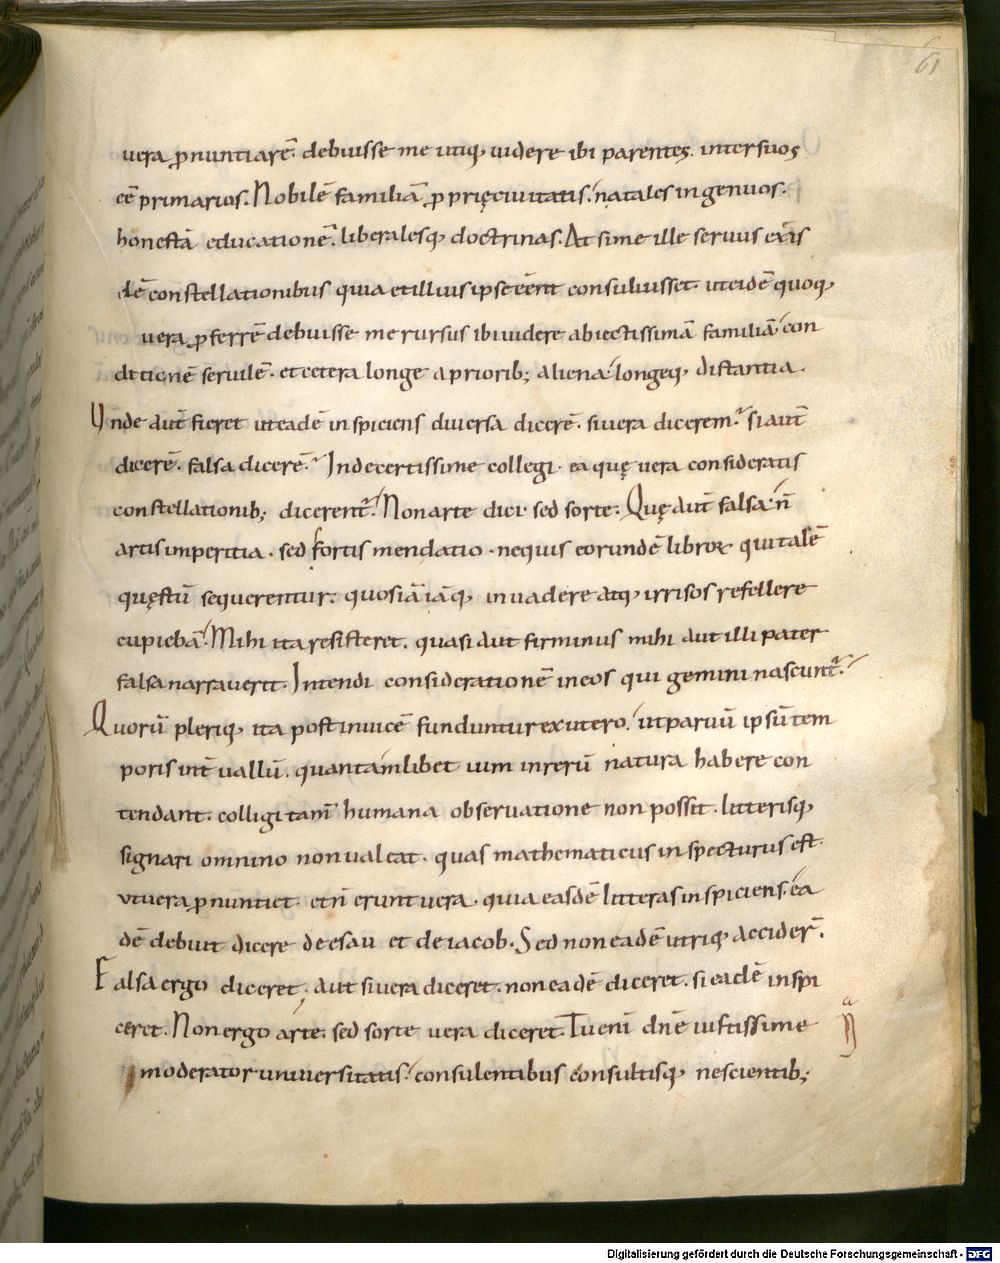 61
uera ꝓnuntiarē. debuisse me utiq; uidere ibi parentes. inter suos
eē primarios. Nobilē familiā ꝓpprię ciuitatis. natales ingenuos.
honestā educationē. liberalesq; doctrinas. At si me ille seruus ex iis
dē constellationibus quia et illius ipse eēnt consuluisset. ut eidē quoq;
uera ꝓferrē debuisse me rursus ibi uidere abiectissimā familiā con
ditionē seruilē. et cetera longe a priorib; aliena longeq; distantia.
Vnde aut̄ fieret ut eadē inspiciens diuersa dicerē. si uera dicerem. si aut̄
dicerē. falsa dicerē. Inde certissime collegi. ea quę uera consideratis
constellationib; dicerent᷑. Non arte dici sed sorte. Quę aut̄ falsa n̄
artis imperitia. sed sortis mendatio. ne quis eorundē libroꝝ qui talē
quęstū sequerentur. quos iā iāq; inuadere atq; irrisos refellere
cupiebā. Mihi ita resisteret. quasi aut firminus mihi aut illi pater
falsa narrauerit. Intendi considerationē in eos qui gemini nascunt᷑.
Quorū pleriq; ita post inuicē funduntur ex utero. ut paruū ipsū tem
poris int̄uallū. quantamlibet uim in rerū natura habere con
tendant. colligi tam̄ humana obseruatione non possit. litterisq;
signari omnino non ualeat. quas mathematicus inspecturus est.
ut uera ꝓnuntiet. et n̄ erunt uera. quia easdē litteras inspiciens. ea
dē debuit dicere de esau et de iacob. Sed non eadē utriq; accider̄.
Falsa ergo diceret. aut si uera diceret. non eadē diceret. si eadē inspi
ceret. Non ergo arte. sed sorte uera diceret. Tu enī dn̄e iustissime
moderator uniuersitatis. consulentibus consultisq; nescientib;
Digitalisierung gefördert durch die Deutsche Forschungsgemeinschaft - DFG